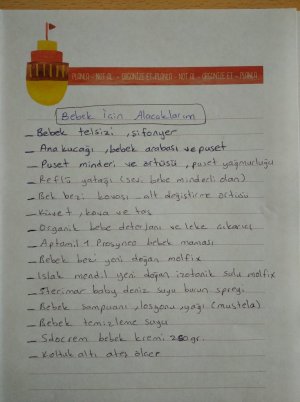 PLANLA - NOT AL - ORGANİZE ET - PLANLA - NOT AL - ORGANİZE ET - PLANLA
Bebek İçin Alacaklarım
_ Bebek telsizi, şifonyer
_ Ana kucağı, bebek arabası ve puset
_ Puset minderi ve örtüsü, puset yağmurluğu
_ Reflü yatağı (sevi bebe minderli olan)
_ Bek bezi kovası alt değiştirme örtüsü
_ Küvet, kova ve tas
_ Organik bebe deterjanı ve leke çıkarıcı
_ Aptamil 1 Prosyneo bebek maması
_ Bebek bezi yeni doğan molfix
_ Islak mendil yeni doğan izotonik sulu molfix
_ Sterimar baby deniz suyu burun spreyi
_ Bebek şampuanı, losyonu, yağı (mustela)
_ Bebek temizleme suyu
_ Sdocrem bebek kremi 250 gr.
_ Koltuk altı ateş ölçer